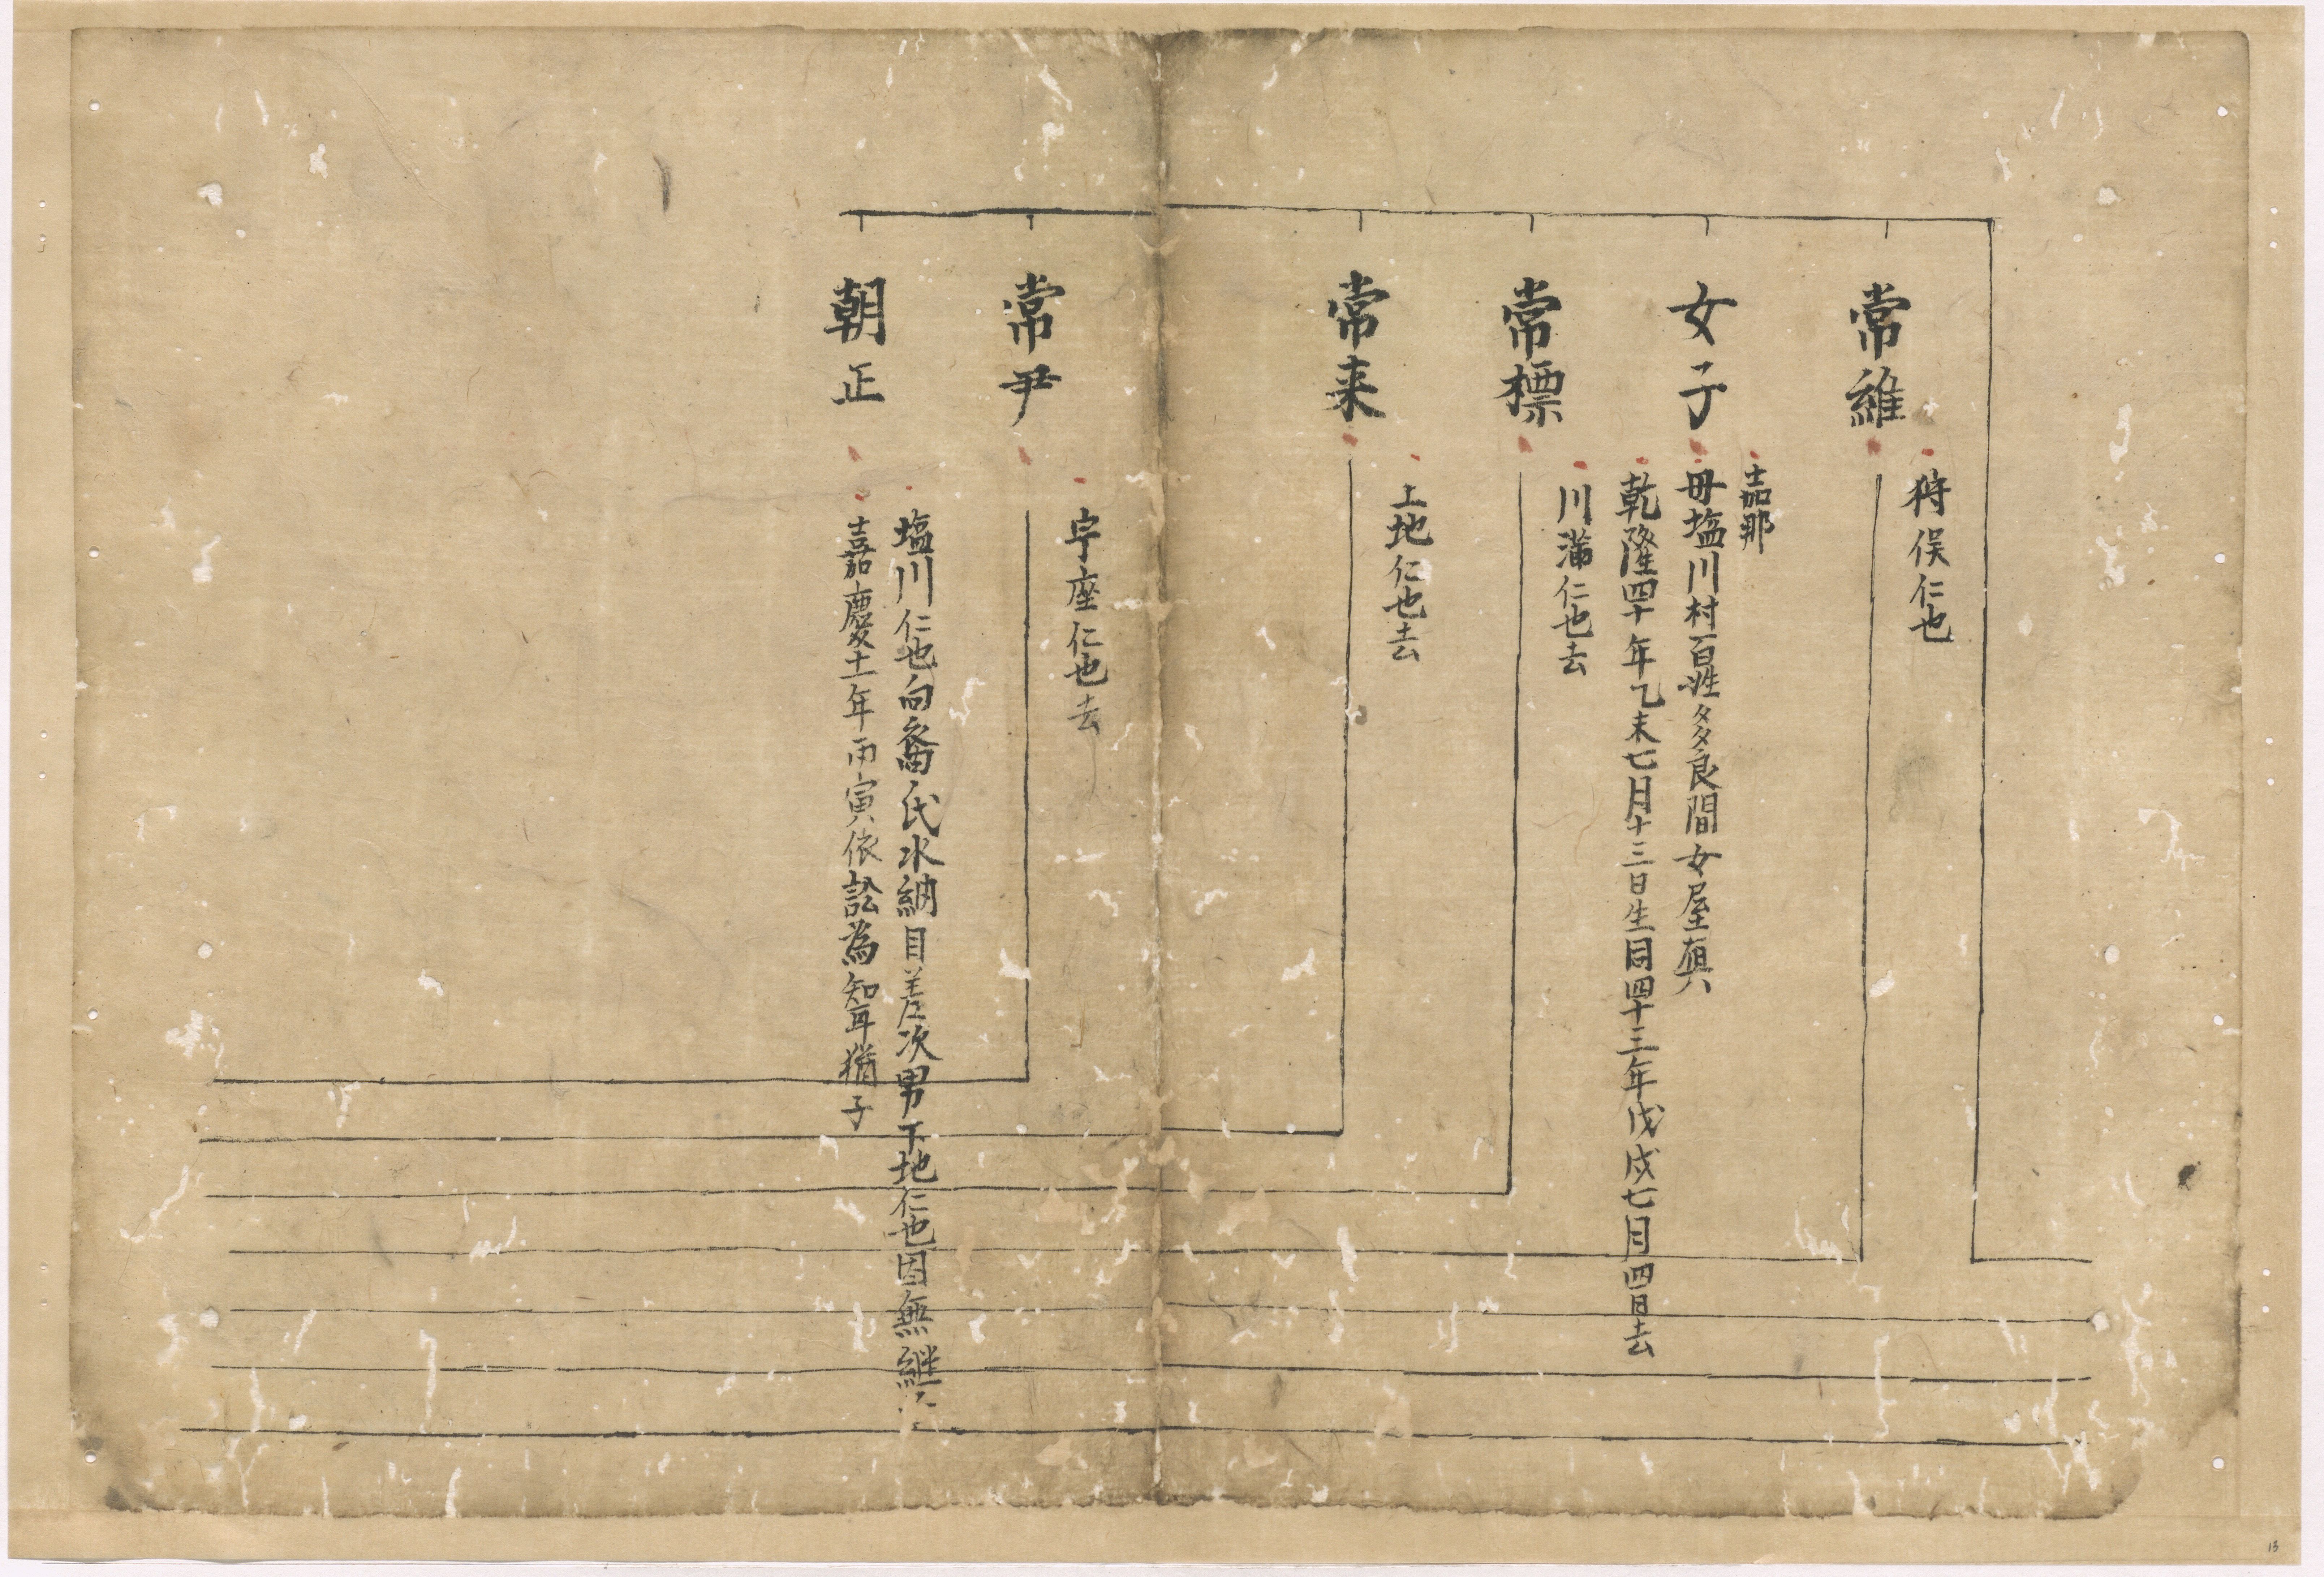 常維
狩俣仁也
女子
嘉那
母塩川村百姓多良間女屋真
乾隆四十年乙未七月十三日生同四十三年戊戌七月四日去
常標
川満仁也去
常来
上地仁也去
常尹
宇座仁也去
朝正
塩川仁也向裔氏水納目差次男下地仁也因無継
嘉慶十一年丙寅依訟為智耳猶子
13